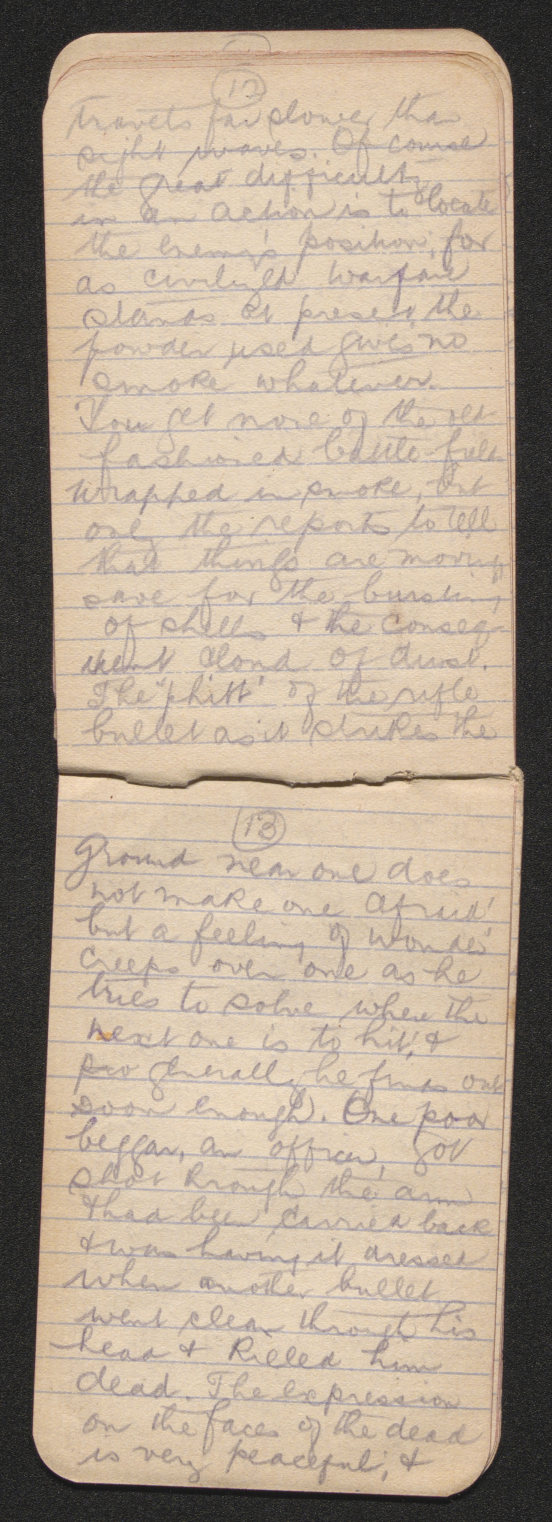 12
travels far slower than
sight waves. Of course
the great difficulty
in an action is to locate
the Enemy's position, for
as civilized warfare
stands at present the
powder used gives no
smoke whatever.
You get none of the old
fashioned battle field
wrapped in smoke, but
only the reports to tell
that things are moving
save for the bursting
of shells & the conseq-
uent cloud of dust.
The "phitt" of the rifle
bullet as it strikes the
13
Ground near one does
not make one afraid
but a feeling of wonder
creeps over one as he
tries to solve where the
next one is to hit, &
generally he finds out
soon enough. One poor
beggar, an officer, got
shot through the arm
& had been carried back
& was having it dressed
when another bullet
went clean through his
head & killed him
dead. The expression
on the faces of the dead
is very peaceful, &